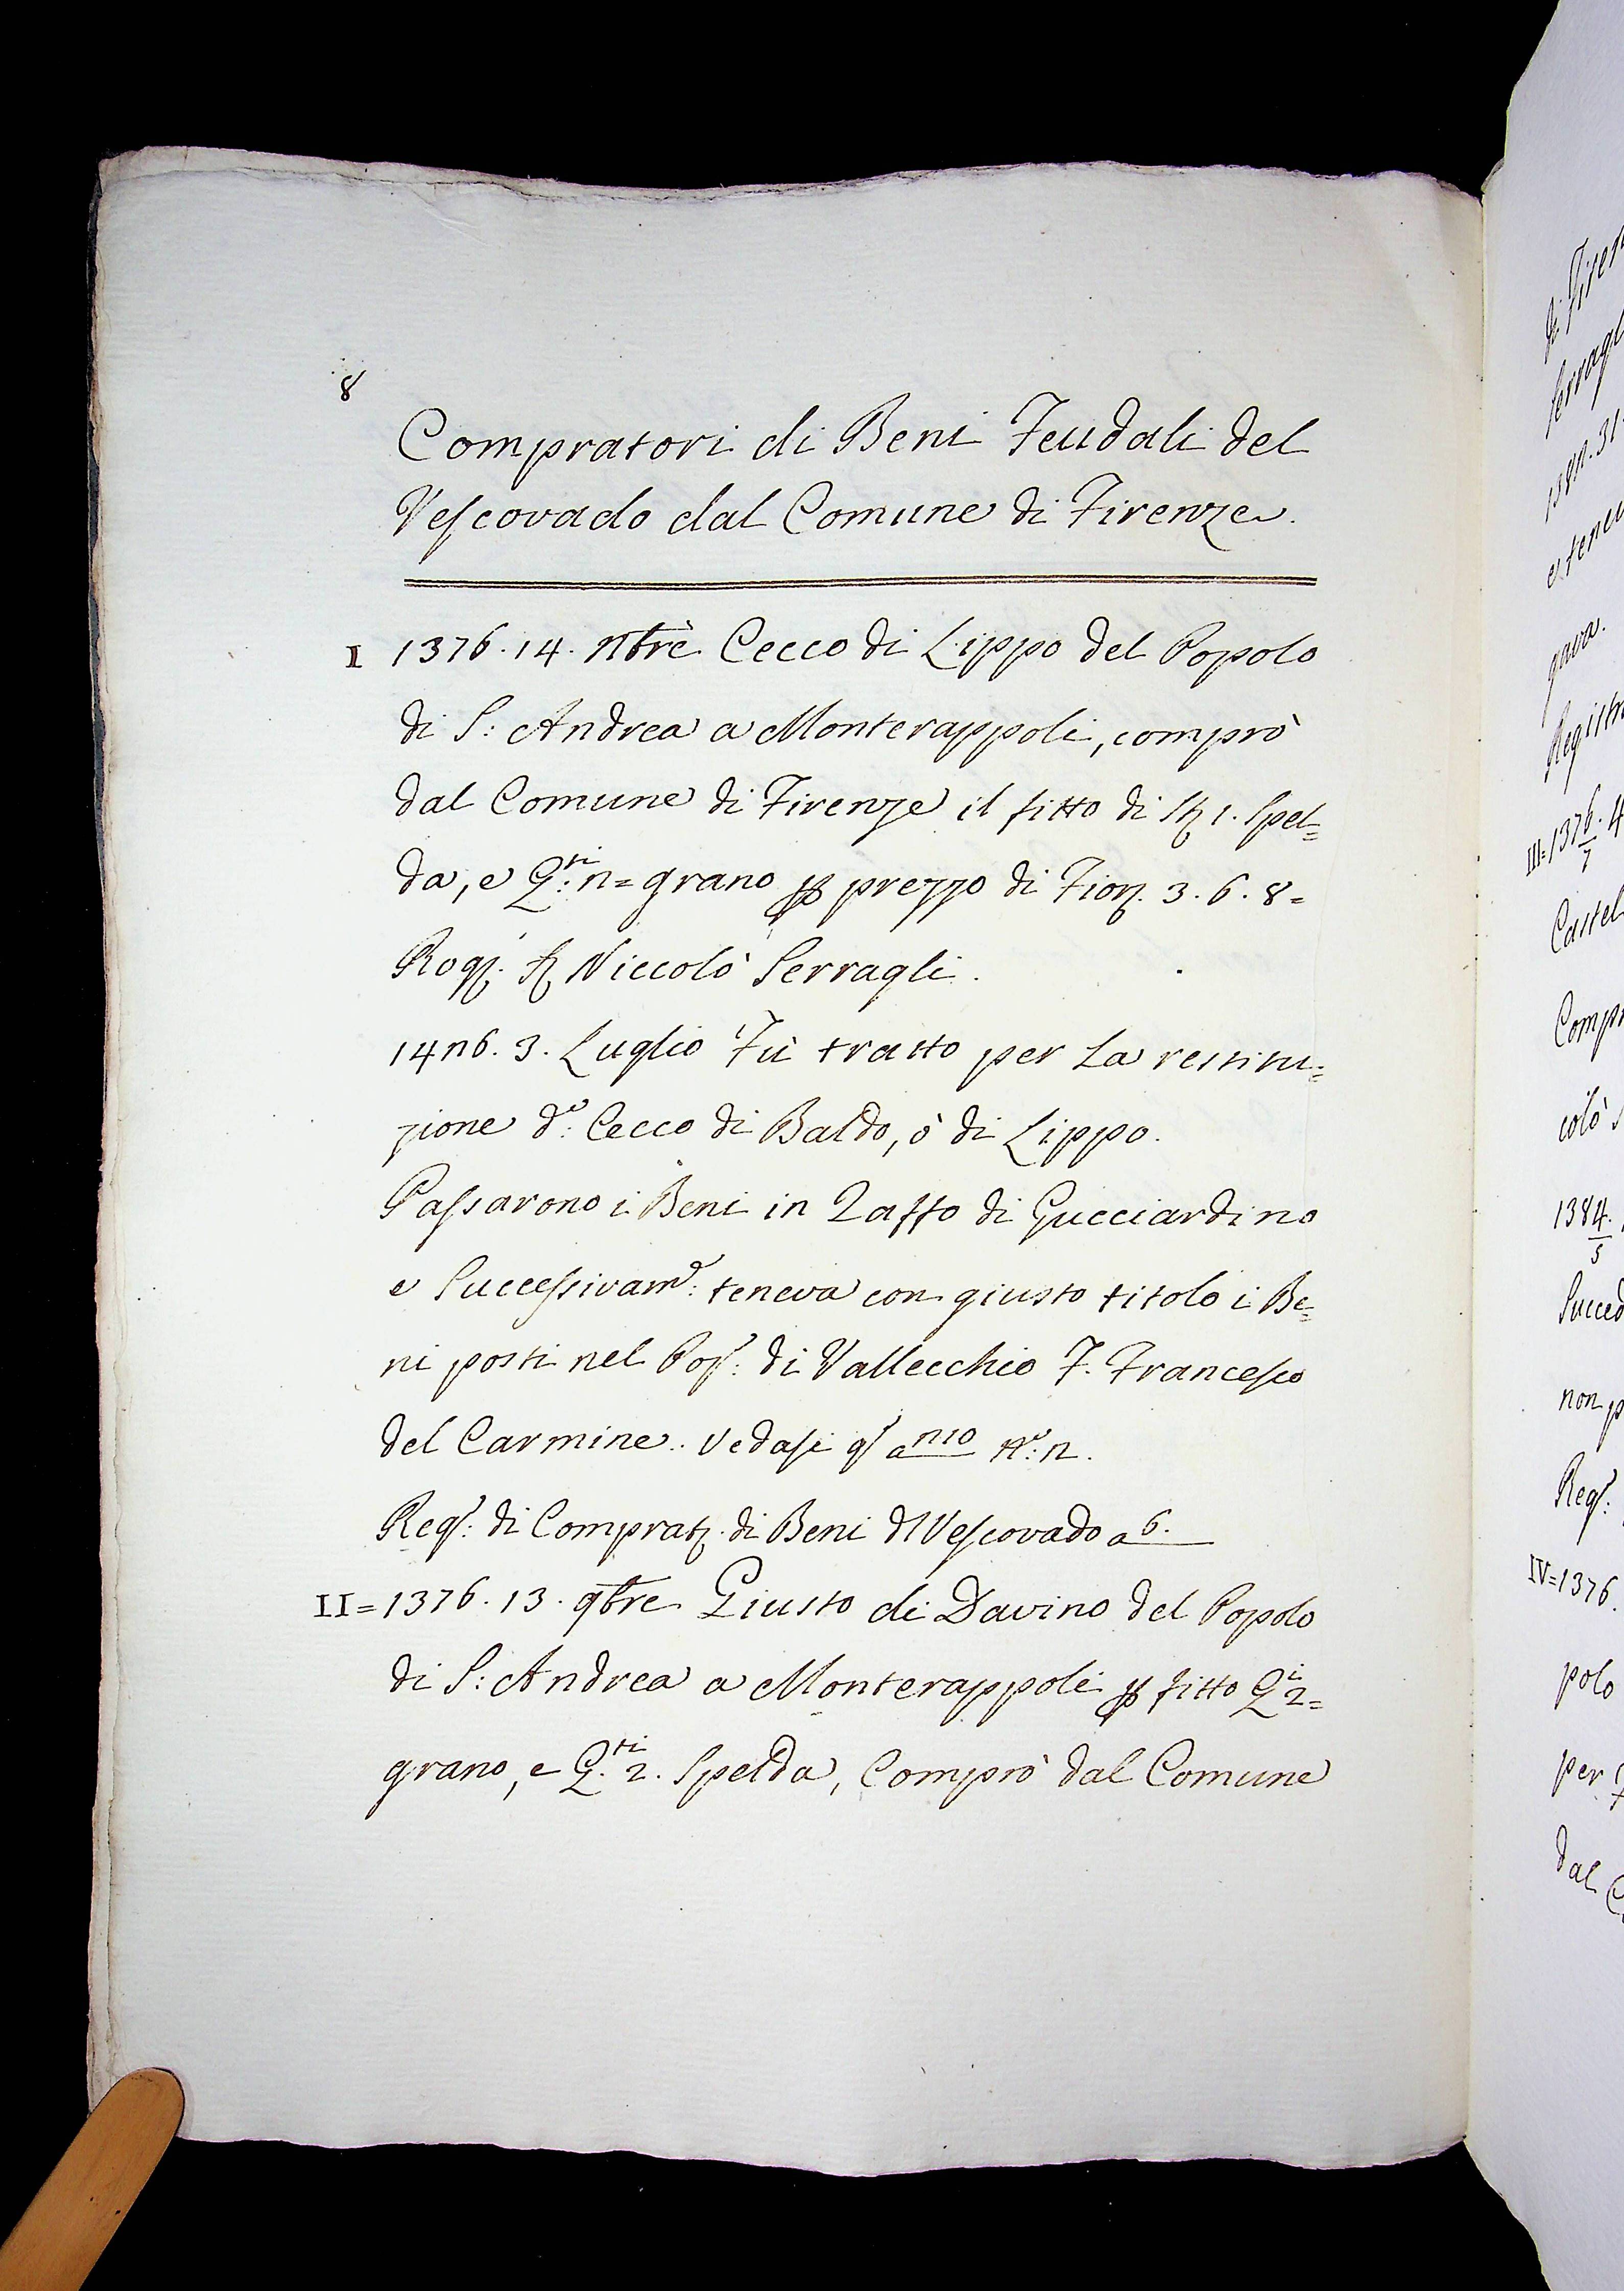 8
Compratori di Beni Feudali del
Vescovado dal Comune di Firenze.
I 1376. 14. nbre Cecco di Lippo del Popolo
di S: Andrea a Monterappoli, comprò
dal Comune di Firenze il fitto di St 1. Spel=
da, e Q:ti n= grano p prezzo di Fior. 3. 6. 8=
Rog. S Niccolò Serragli.
14n6. 3. Luglio Fù tratto per La restitu=
zione d:o Cecco di Baldo, ò di Lippo.
Passarono i Beni in Zaffo di Gucciardino
e Successivam:e teneva con giusto titolo i Be=
ni posti nel Pop: di Vallecchio F. Francesco
del Carmine. Vedasi qs a n10 N:o n.
Reg: di Comprat. di Beni dl Vescovado a 6.
II= 1376. 13. 9bre Giusto di Davino del Popolo
di S: Andrea a Monterappoli p fitto Q.i 2=
grano, e Q.ti 2. Spelda, Comprò dal Comune
di
Serragl
31
e tenev
gava.
Registr
III= 1376. 4
7
Castel
Comp
colò
1384.
5
Succed
non p
Reg:
IV= 1376.
polo
per
dal C